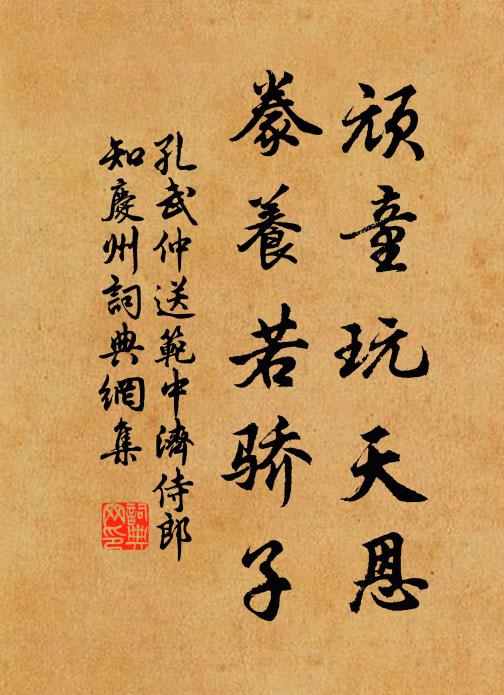 顽童玩天恩
豢養若骄子
孔武仲送範中濟侍郎
知慶州詞典網集
詞典
网印